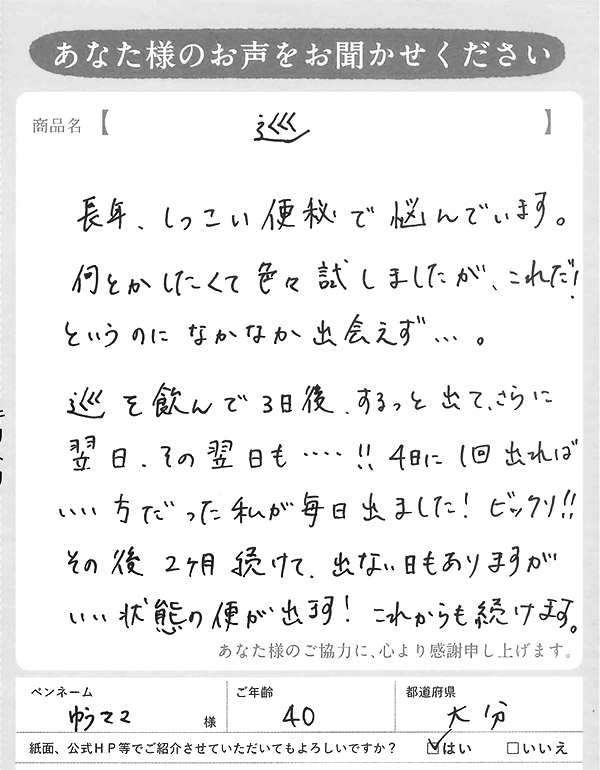 あなた様のお声をお聞かせください
商品名【 巡 】
長年、しつこい便秘で悩んでいます。
何とかしたくて色々試しましたが、これだ!
というのになかなか出会えず…。
巡を飲んで3日後、するっと出て、さらに
翌日、その翌日も‥‥!! 4日に1回出れば
いい方だった私が毎日出ました! ビックリ!!
その後2ヶ月続けて、出ない日もありますが
いい状態の便が出ます! これからも続けます。
あなた様のご協力に、心より感謝申し上げます。
ペンネーム ご年齢 都道府県
様 40 大分
紙面、公式HP等でご紹介させていただいてもよろしいですか? ☑はい □いいえ